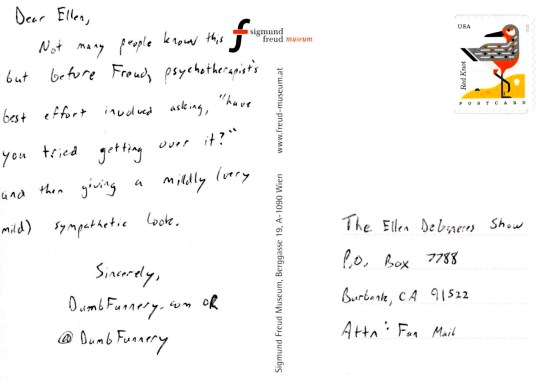 Dear Ellen,
Not many people know this
but before Freud, psychotherapist's
best effort involved asking, "have
you tried getting over it?"
and then giving a mildly (very
mild) sympathetic look.
Sincerely,
DumbFunnery.com OR
@DumbFunnery
sigmund
freud museum
Sigmund Freud Museum, Berggasse 19, A-1090 Wien www.freud-museum.at
USA
Red Knot
POSTCARD
The Ellen DeGeneres Show
P.O. Box 7788
Burbank, CA 91522
Attn: Fan Mail